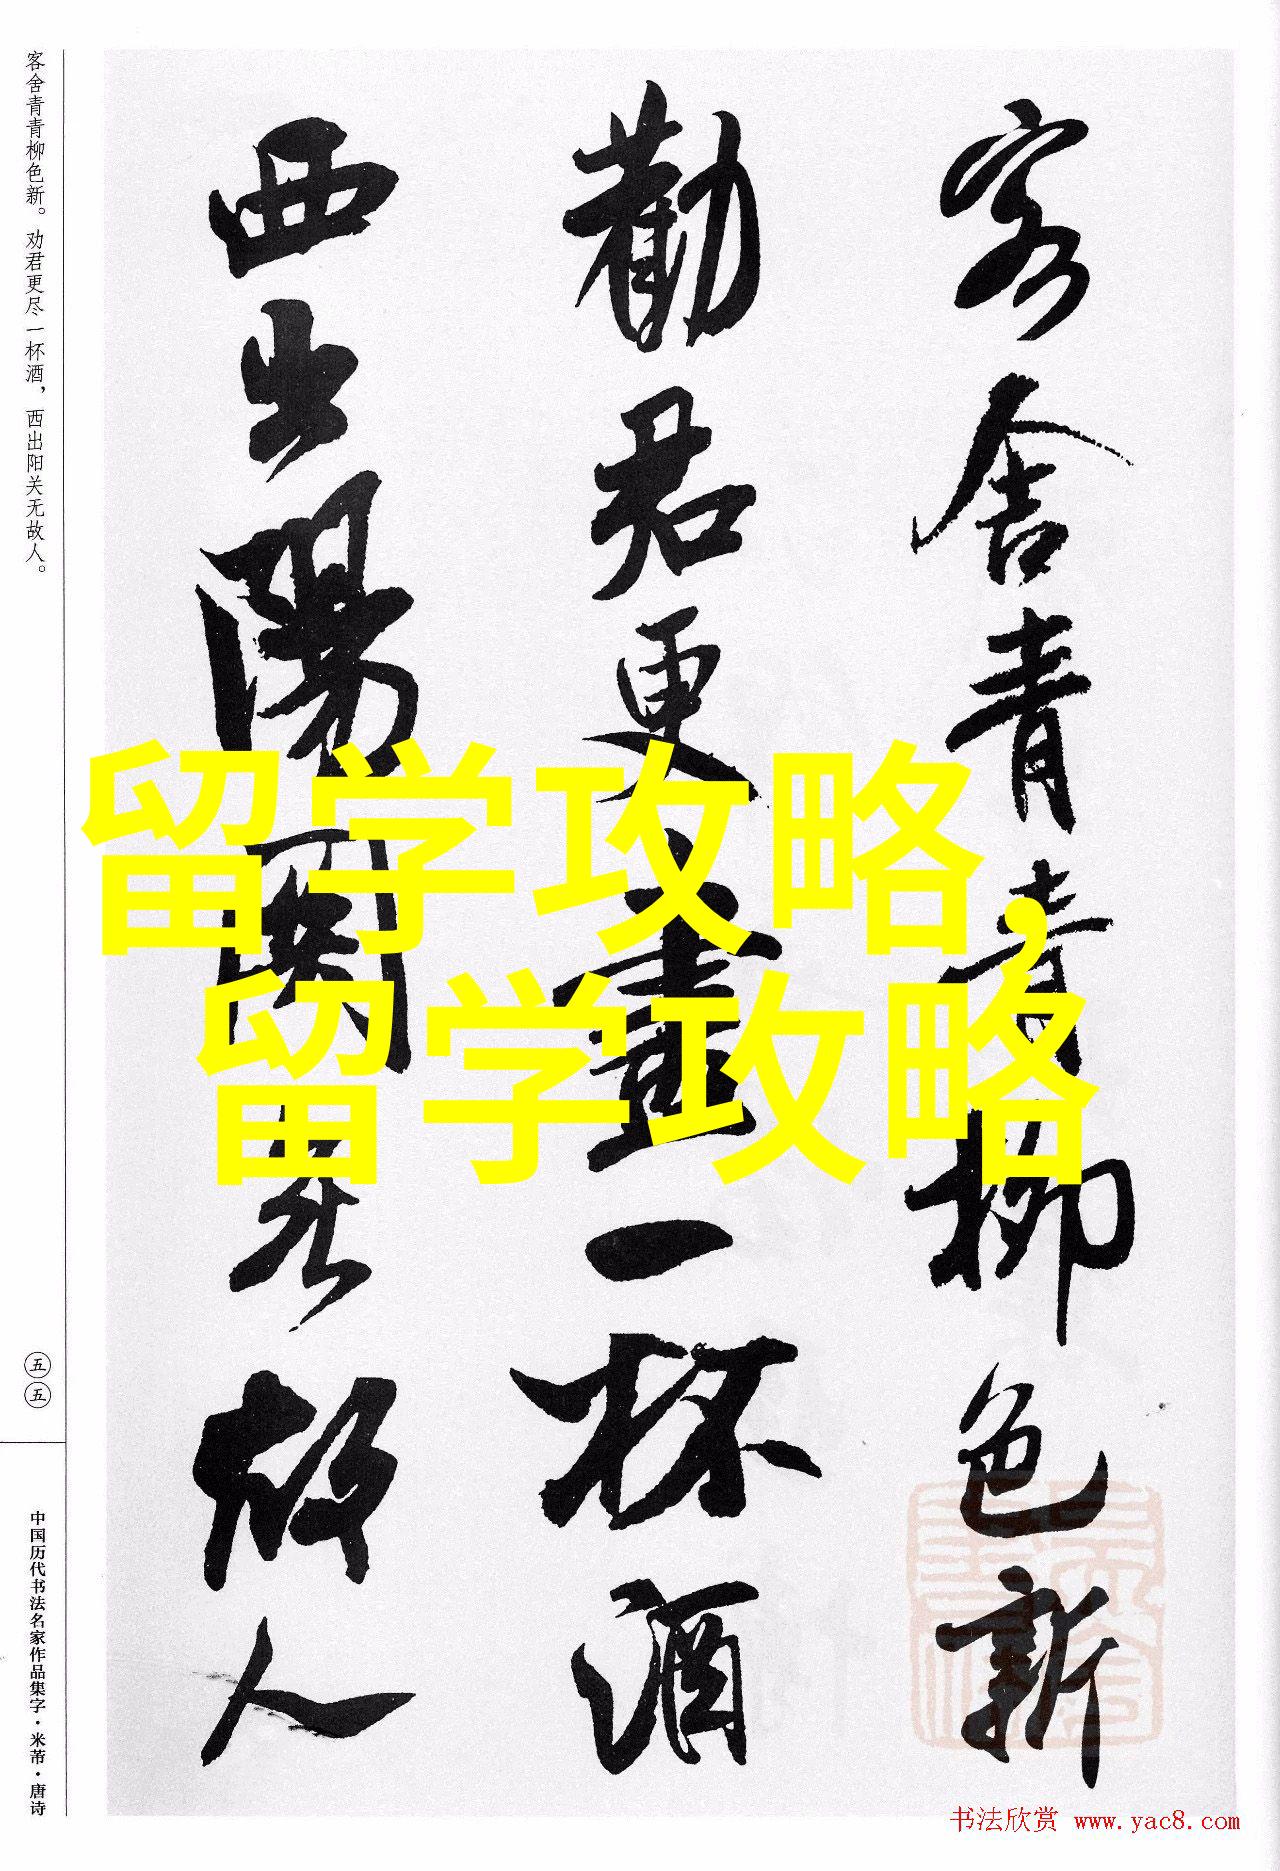 客舍青青柳色新
勸君更盡一杯酒
西出陽關無故人
客舍青青柳色新。劝君更尽一杯酒，西出阳关无故人。
五五
中国历代书法名家作品集字·米芾·唐诗
留学攻略，
留学攻略
书法欣赏 www.yac8.com